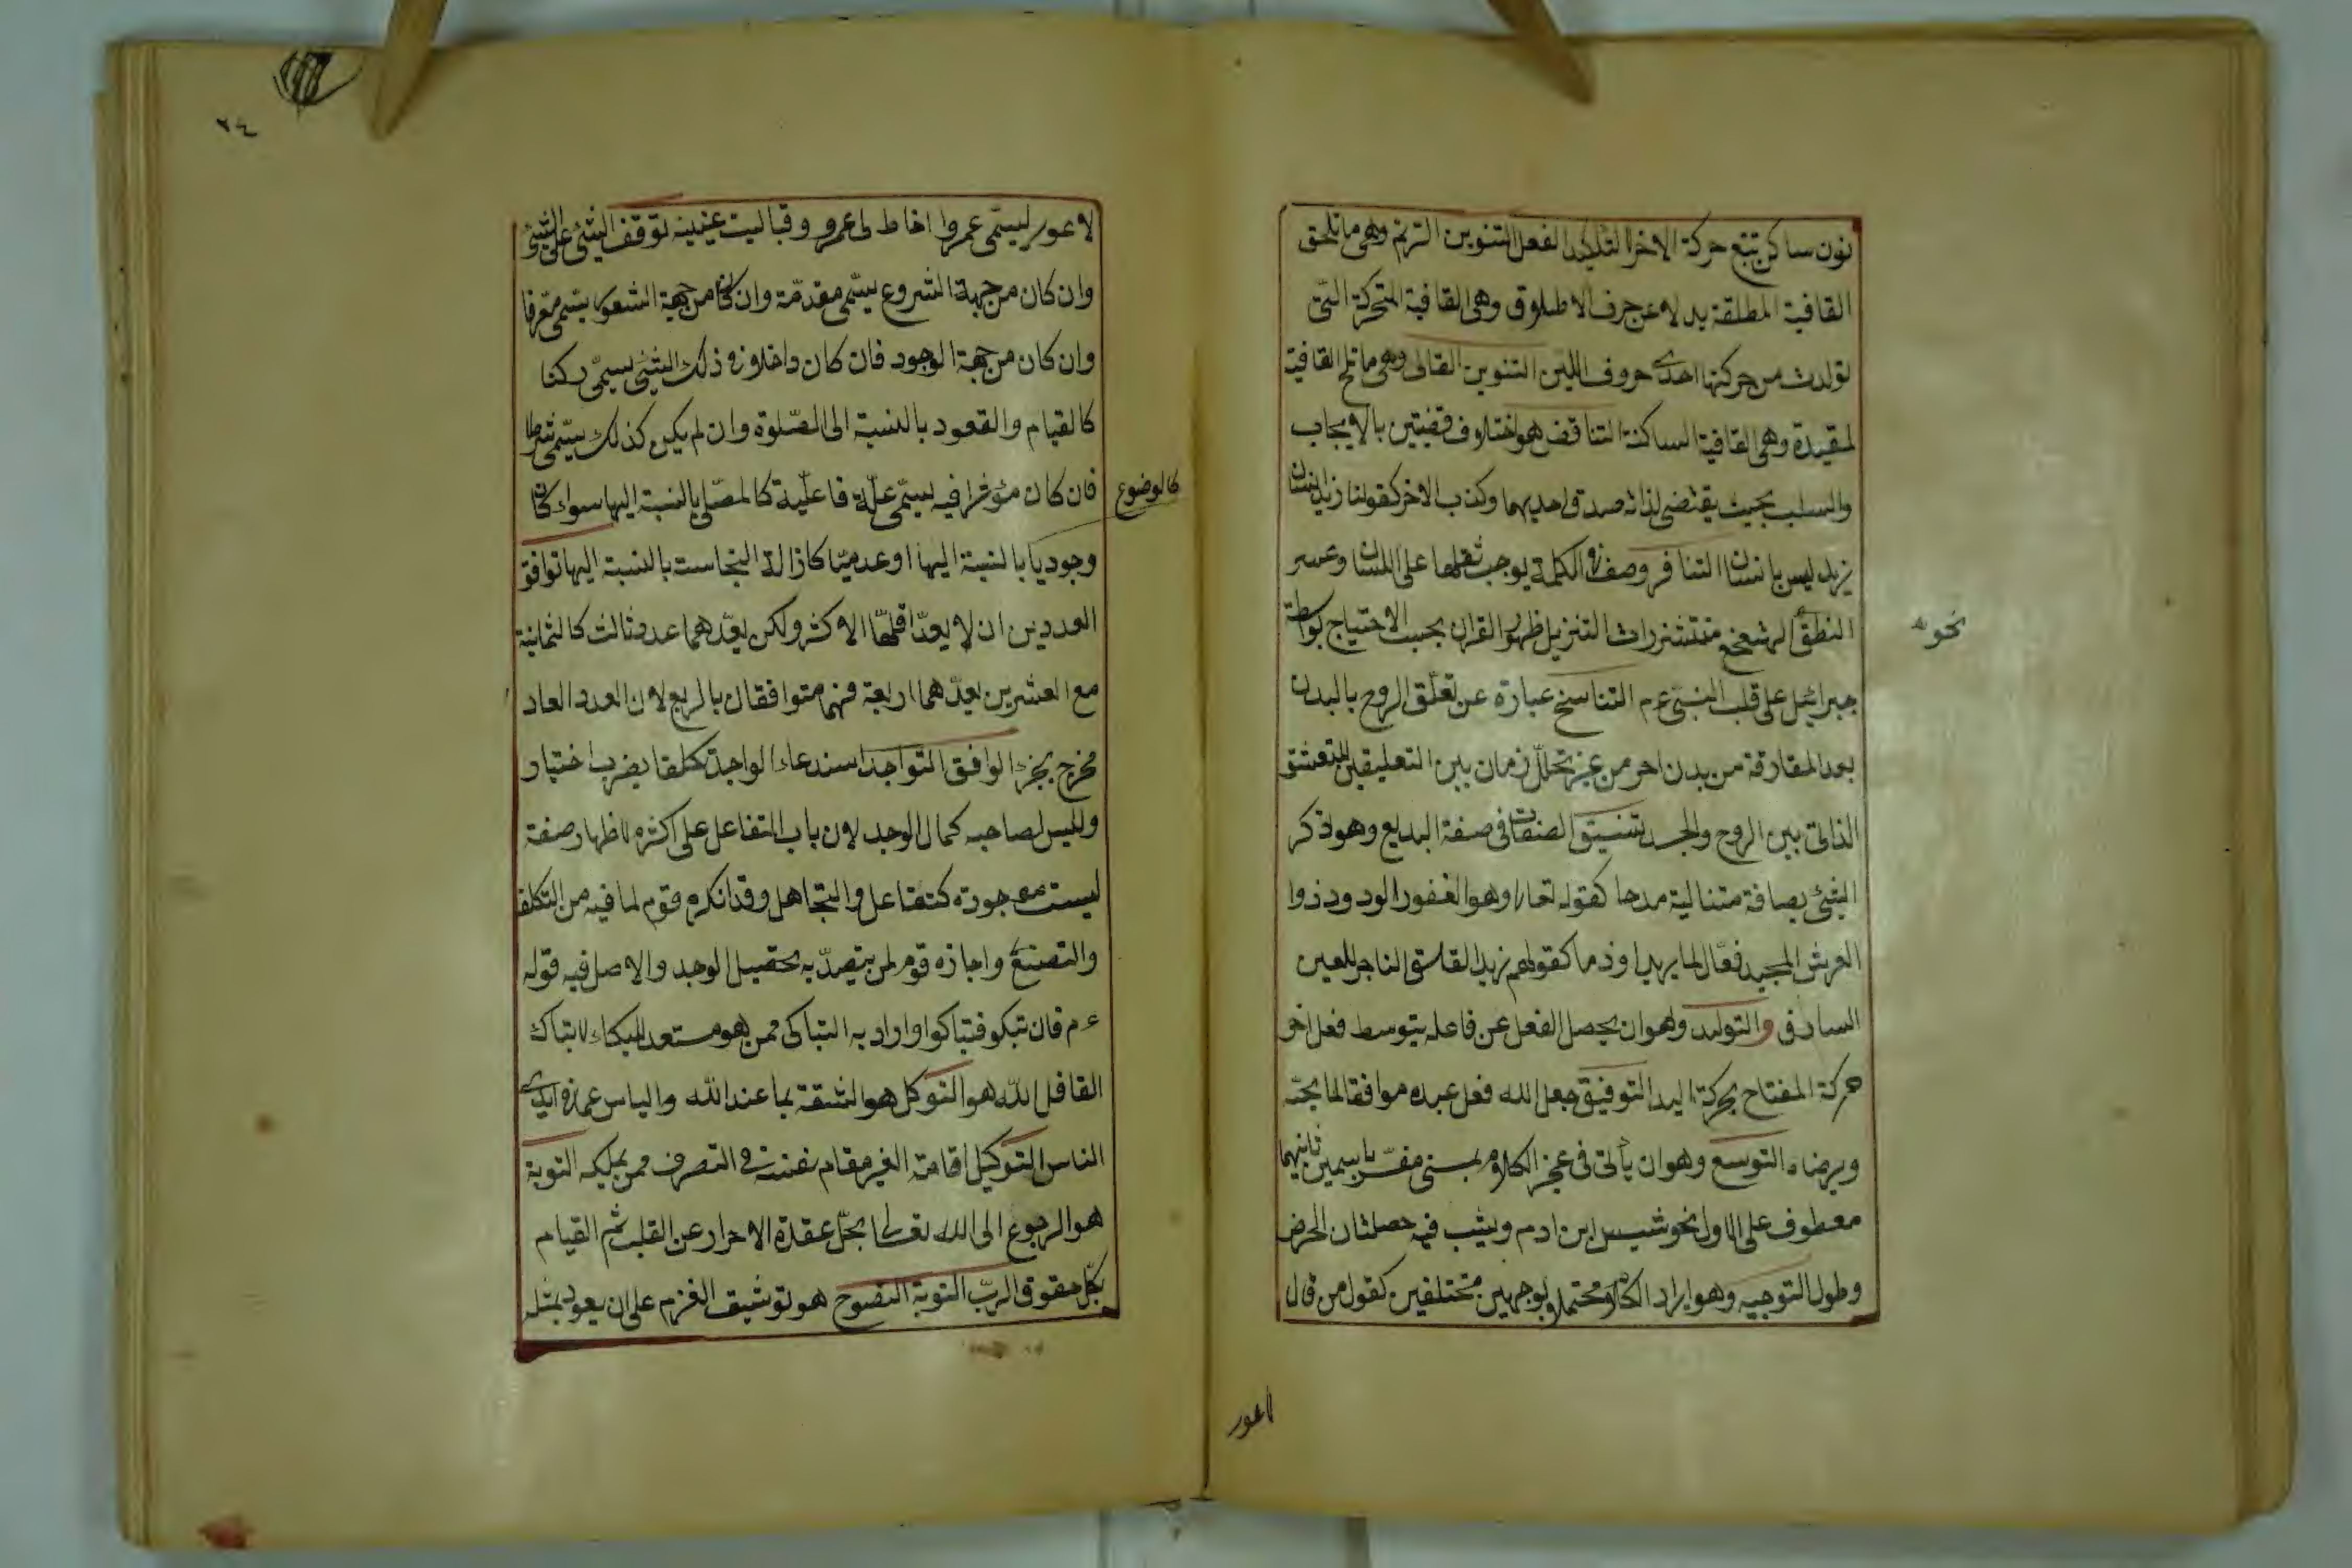 نون ساكن تتبع حركة الاخر لا لتاكيد الفعل التنوين الترنم وهى ما تلحق
القافية المطلقة بدلا عن حرف الاطلاق وهى القافية المتحركة التى
تولدت من حركتها احدى حروف اللين التنوين الغالى وهى ما تلح القافية
لمقيدة وهى القافية الساكنة التناقض هو اختلاف قضيتين بالايجاب
والسلب بحيث يقتضى لذاته صدق احديهما وكذب الاخر كقولنا زيد انسان
زيد ليس بانسان التنافر وصف فى الكلمة يوجب ثقلها على اللسان وعسر
النطق الهعخع مستشزرات التنزيل ظهور القران بحسب الاحتياج بواسطة
نحو
جبرائيل على قلب النبى ع م التناسخ عبارة عن تعلق الروح بالبدن
بعد المفارقة من بدن اخر من غير تخلل زمان بين التعليقين للتعشق
الذاتى بين الروح والجسد تنسيق الصفات فى صفة البديع وهو ذكر
الشئ بصافة متتالية مدحا كقوله تعالى وهو الغفور الودود ذوا
العرش المجيد فعال لما يريد او ذما كقولهم زيد الفاسق الفاجر للعين
السارق والتوليد وهو ان يحصل الفعل عن فاعله بتوسط فعل اخر
حركة المفتاح بحركة اليد التوفيق جعل الله فعل عبده موافقا لما يحبّه
ويرضاه التوسع وهو ان يأتى فى عجز الكلام بمسنى مفسر باسمين ثانيهما
معطوف على الاول نحو شيب ابن ادم ويشب فيه خصلتان الحرض
وطول التوجيه وهو ايراد الكلام محتملا لوجهين مختلفين كقول من قال
لاعور
لاعور ليسمى عمروا اخاط لى عمرو وقبا ليت عينيه توقف الشئ على الشئ
وان كان من جهة الشروع يسمى مقدمة وان كان من جهة الشعور يسمى معرفا
وان كان من جهة الوجود فان كان داخلا فى ذلك الشئ يسمى ركنا
كالقيام والقعود بالنسبة الى الصلوة وان لم يكن كذلك يسمى شرطا
كالوضوع
فان كان مؤثرا فيه يسمى علة فاعلية كالمصلى بالنسبة اليها سواء كان
وجوديا بالنسبة اليها او عدميا كازالة النجاست بالنسبة اليها توافق
العددين ان لا يعد اقلهما الاكثر ولكن يعدهما عدد ثالث كالثمانية
مع العشرين يعدهما اربعة فهما متوافقان بالربع لان العدد العاد
مخرج بجزء الوافق التواجد استدعاء الواجد تكلفا بضرب اختيار
وليس لصاحبه كمال الوجد لان باب التفاعل على اكثره لاظهار صفة
ليست موجودة كتغافل والتجاهل وقد انكره قوم لما فيه من التكلف
والتصنع واجازه قوم لمن يقصد به تحصيل الوجد والاصل فيه قوله
ع م فان تبكو فتباكوا واراد به التباكى ممن هو مستعد للبكاء لا تباك
الغافل لله هو التوكل هو الثقة بما عند الله والياس عما فى ايدى
الناس التوكيل اقامة الغير مقام نفسه فى التصرف ممن يملكه التوبة
هو الرجوع الى الله تعالى بحل عقدة الاحرار عن القلب ثم القيام
بكل حقوق الرب التوبة النصوح هو توثيق العزم على ان يعود بمثله
٢٤